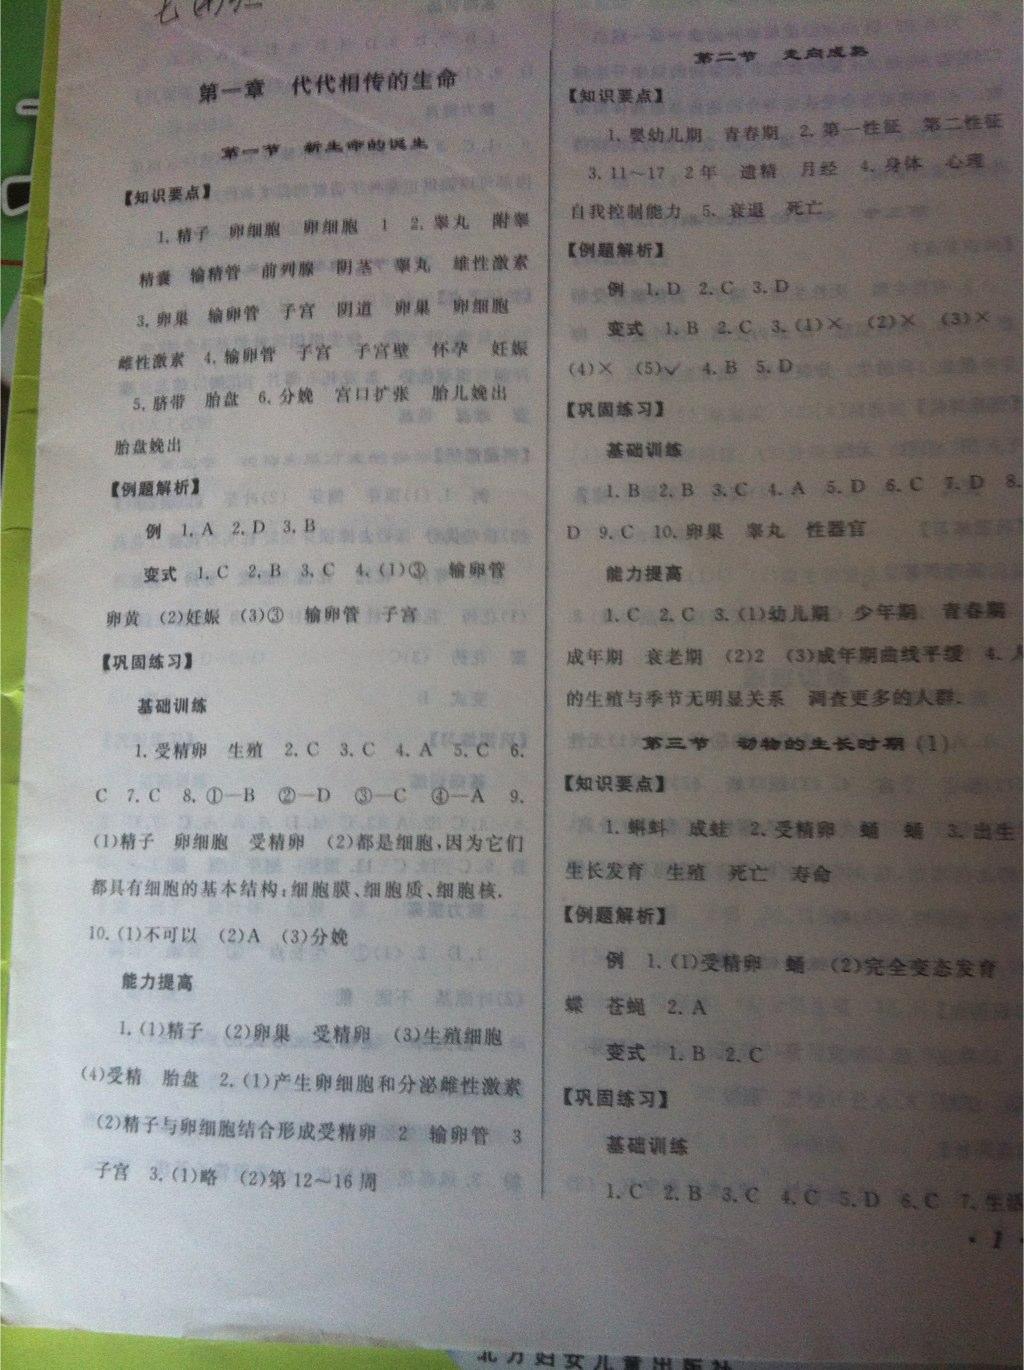 第一章 代代相传的生命
第一节 新生命的诞生
【知识要点】
1. 精子 卵细胞 卵细胞 1 2. 睾丸 附睾
精囊 输精管 前列腺 阴茎 睾丸 雄性激素
3. 卵巢 输卵管 子宫 阴道 卵巢 卵细胞
雌性激素 4. 输卵管 子宫 子宫壁 怀孕 妊娠
5. 脐带 胎盘 6. 分娩 宫口扩张 胎儿娩出
胎盘娩出
【例题解析】
例 1. A 2. D 3. B
变式 1. C 2. B 3. C 4. (1)③ 输卵管
卵黄 (2)妊娠 (3)③ 输卵管 子宫
【巩固练习】
基础训练
1. 受精卵 生殖 2. C 3. C 4. A 5. C 6.
C 7. C 8. ①—B ②—D ③—C ④—A 9.
(1)精子 卵细胞 受精卵 (2)都是细胞,因为它们
都具有细胞的基本结构:细胞膜、细胞质、细胞核.
10. (1)不可以 (2)A (3)分娩
能力提高
1. (1)精子 (2)卵巢 受精卵 (3)生殖细胞
(4)受精 胎盘 2. (1)产生卵细胞和分泌雌性激素
(2)精子与卵细胞结合形成受精卵 2 输卵管 3
子宫 3. (1)略 (2)第12～16周
第二节 走向成熟
【知识要点】
1. 婴幼儿期 青春期 2. 第一性征 第二性征
3. 11～17 2年 遗精 月经 4. 身体 心理
自我控制能力 5. 衰退 死亡
【例题解析】
例 1. D 2. C 3. D
变式 1. B 2. C 3. (1)× (2)× (3)×
(4)× (5)✓ 4. B 5. D
【巩固练习】
基础训练
1. B 2. B 3. C 4. A 5. D 6. C 7. D 8.
D 9. C 10. 卵巢 睾丸 性器官
能力提高
1. C 2. C 3. (1)幼儿期 少年期 青春期
成年期 衰老期 (2)2 (3)成年期曲线平缓 4. 人
的生殖与季节无明显关系 调查更多的人群.
第三节 动物的生长时期 (1)
【知识要点】
1. 蝌蚪 成蛙 2. 受精卵 蛹 蛹 3. 出生
生长发育 生殖 死亡 寿命
【例题解析】
例 1. (1)受精卵 蛹 (2)完全变态发育
蝶 苍蝇 2. A
变式 1. B 2. C
【巩固练习】
基础训练
1. C 2. B 3. C 4. C 5. D 6. C 7. 生活
· 1 ·
北方妇女儿童出版社